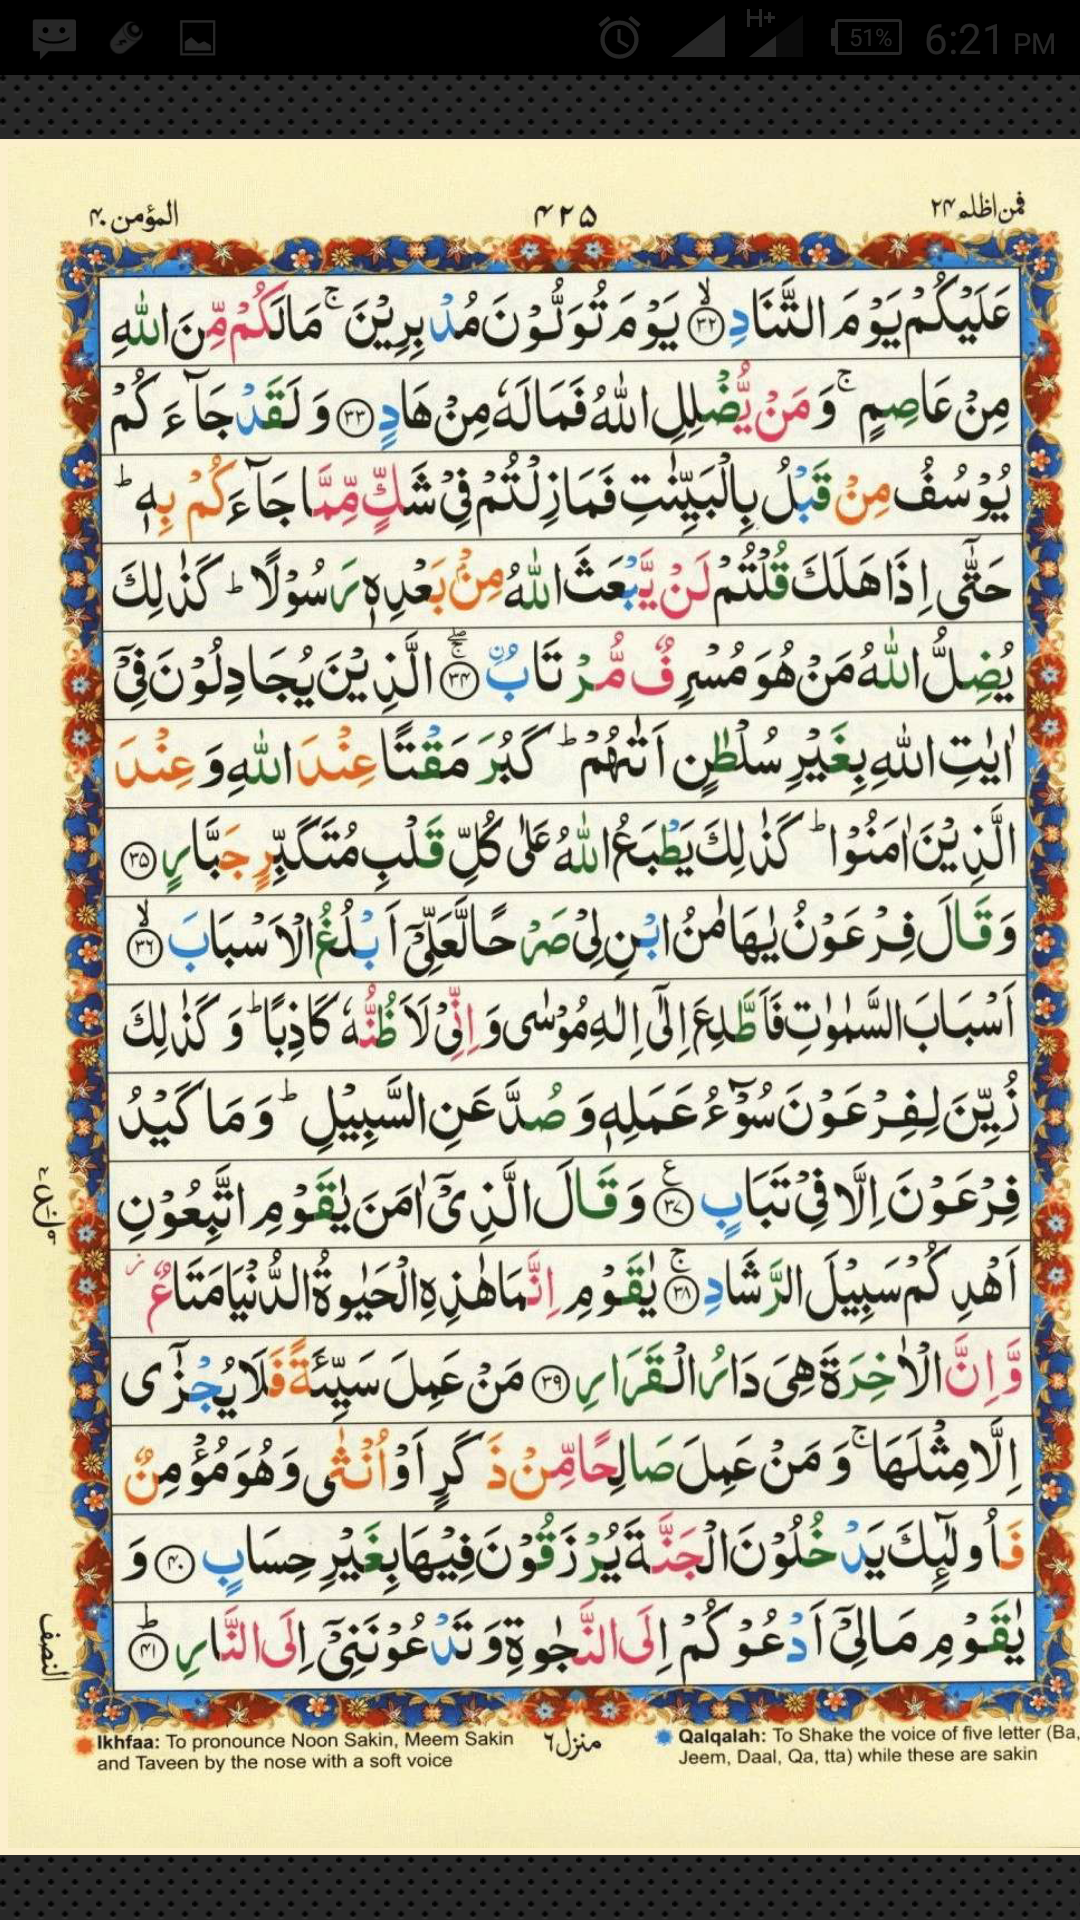 H+ 51% 6:21 PM
فمن اظلم ۲۴
۴۲۵
المؤمن ۴۰
عَلَيْكُمْ يَوْمَ التَّنَادِ ۙ‏﴿۳۲﴾ يَوْمَ تُوَلُّوْنَ مُدْبِرِيْنَ ۚ مَا لَكُمْ مِّنَ اللّٰهِ
مِنْ عَاصِمٍ ۚ وَ مَنْ يُّضْلِلِ اللّٰهُ فَمَا لَهٗ مِنْ هَادٍ ﴿۳۳﴾ وَ لَقَدْ جَآءَ كُمْ
يُوْسُفُ مِنْ قَبْلُ بِالْبَيِّنٰتِ فَمَا زِلْتُمْ فِىْ شَكٍّ مِّمَّا جَآءَكُمْ بِهٖ ؕ
حَتّٰٓى اِذَا هَلَكَ قُلْتُمْ لَنْ يَّبْعَثَ اللّٰهُ مِنْۢ بَعْدِهٖ رَسُوْلًا ؕ كَذٰلِكَ
يُضِلُّ اللّٰهُ مَنْ هُوَ مُسْرِفٌ مُّرْتَابُ ۨ ۚۖ ﴿۳۴﴾ الَّذِيْنَ يُجَادِلُوْنَ فِىْۤ
اٰيٰتِ اللّٰهِ بِغَيْرِ سُلْطٰنٍ اَتٰٮهُمْ ؕ كَبُرَ مَقْتًا عِنْدَ اللّٰهِ وَ عِنْدَ
الَّذِيْنَ اٰمَنُوْا ؕ كَذٰلِكَ يَطْبَعُ اللّٰهُ عَلٰى كُلِّ قَلْبِ مُتَكَبِّرٍ جَبَّارٍ ﴿۳۵﴾
وَ قَالَ فِرْعَوْنُ يٰهَامٰنُ ابْنِ لِىْ صَرْحًا لَّعَلِّىْۤ اَبْلُغُ الْاَسْبَابَ ۙ‏﴿۳۶﴾
اَسْبَابَ السَّمٰوٰتِ فَاَطَّلِعَ اِلٰٓى اِلٰهِ مُوْسٰى وَ اِنِّىْ لَاَظُنُّهٗ كَاذِبًا ؕ وَ كَذٰلِكَ
زُيِّنَ لِفِرْعَوْنَ سُوْٓءُ عَمَلِهٖ وَ صُدَّ عَنِ السَّبِيْلِ ؕ وَ مَا كَيْدُ
فِرْعَوْنَ اِلَّا فِىْ تَبَابٍ ﴿۳۷﴾ ع وَ قَالَ الَّذِىْۤ اٰمَنَ يٰقَوْمِ اتَّبِعُوْنِ
اَهْدِكُمْ سَبِيْلَ الرَّشَادِ ۚ‏﴿۳۸﴾ يٰقَوْمِ اِنَّمَا هٰذِهِ الْحَيٰوةُ الدُّنْيَا مَتَاعٌ ز
وَّ اِنَّ الْاٰخِرَةَ هِىَ دَارُ الْقَرَارِ ﴿۳۹﴾ مَنْ عَمِلَ سَيِّئَةً فَلَا يُجْزٰٓى
اِلَّا مِثْلَهَا ۚ وَ مَنْ عَمِلَ صَالِحًا مِّنْ ذَكَرٍ اَوْ اُنْثٰى وَ هُوَ مُؤْمِنٌ
فَاُولٰٓئِكَ يَدْخُلُوْنَ الْجَنَّةَ يُرْزَقُوْنَ فِيْهَا بِغَيْرِ حِسَابٍ ﴿۴۰﴾ وَ
يٰقَوْمِ مَا لِىْۤ اَدْعُوْكُمْ اِلَى النَّجٰوةِ وَ تَدْعُوْنَنِىْۤ اِلَى النَّارِ ؕ‏﴿۴۱﴾
النصف
منزل ۶
Ikhfaa: To pronounce Noon Sakin, Meem Sakin
and Taveen by the nose with a soft voice
Qalqalah: To Shake the voice of five letter (Ba,
Jeem, Daal, Qa, tta) while these are sakin